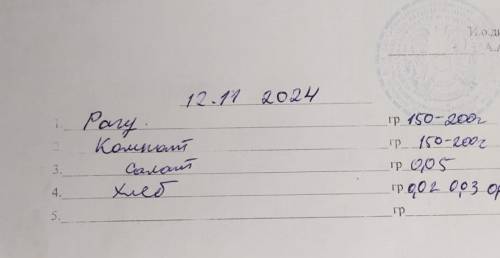 И.о.ди
12.11 2024
1. Рагу. гр 150-200г
2. Компот гр 150-200г
3. Салат гр 0,05
4. Хлеб гр 0,02 0,03
5. гр